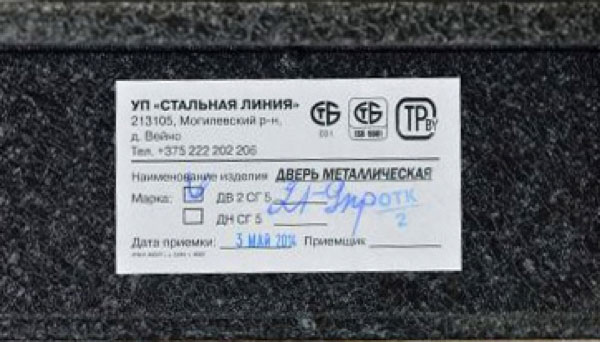 УП «СТАЛЬНАЯ ЛИНИЯ»
213105, Могилевский р-н,
д. Вейно
Тел. +375 222 202 206
СТБ
СТБ
ISO 9001
ТР BY
Наименование изделия ДВЕРЬ МЕТАЛЛИЧЕСКАЯ
Марка: ДВ 2 СГ 5
ДН СГ 5
ОТК
2
Дата приемки: 3 МАЙ 2014 Приемщик